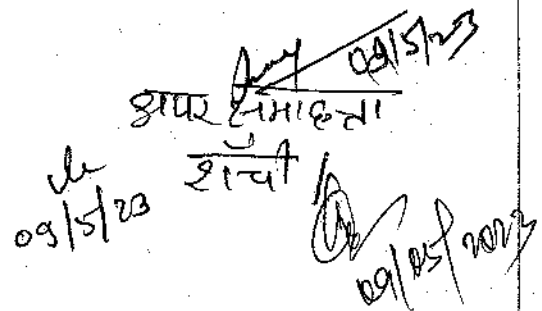 09/5/23
अपर समाहर्ता
राँची
09/5/23
09/05/2023